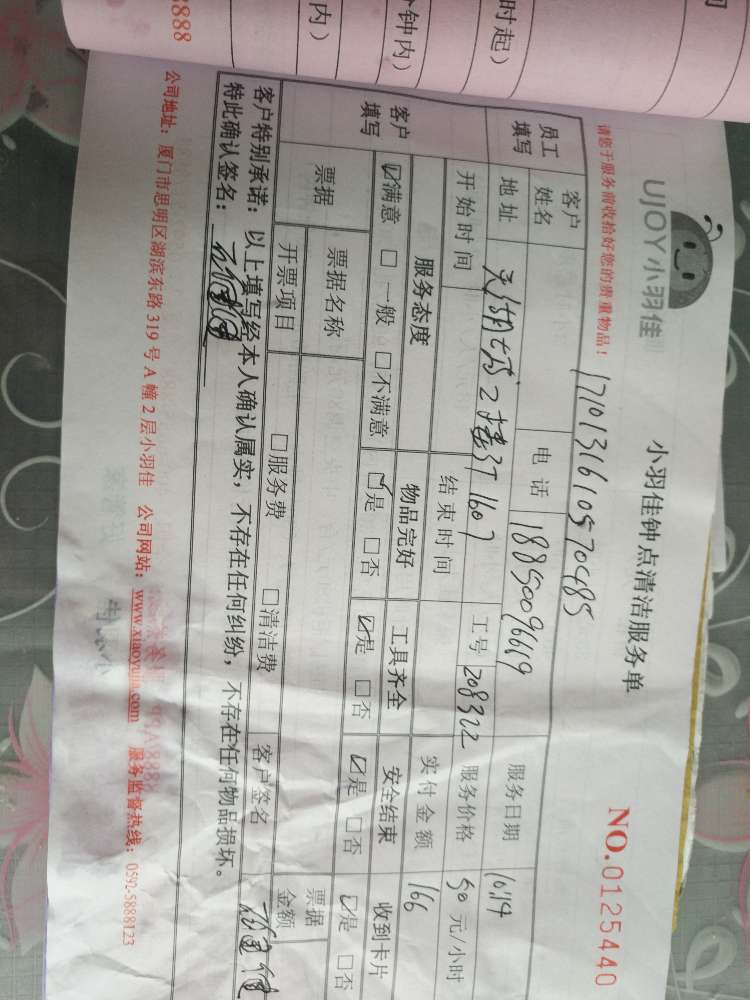 时起)
钟内)
内)
8888
UJOY小羽佳
小羽佳钟点清洁服务单
NO.0125440
请您于服务前收拾好您的贵重物品!
1710131610570485
员工填写
客户姓名
电话
18850096619
服务日期
10.14
地址
2楼 1607
工号
208322
服务价格
50元/小时
开始时间
结束时间
实付金额
166
客户填写
服务态度
物品完好
工具齐全
安全结束
收到卡片
☑满意 □一般 □不满意
☑是 □否
☑是 □否
☑是 □否
☑是 □否
票据
票据名称
票据金额
开票项目
□服务费
□清洁费
客户签名
客户特别承诺:以上填写经本人确认属实,不存在任何纠纷,不存在任何物品损坏。
特此确认签名:
公司地址:厦门市思明区湖滨东路319号A幢2层小羽佳 公司网站:www.xiaoyujia.com 服务监督热线:0592-5888123